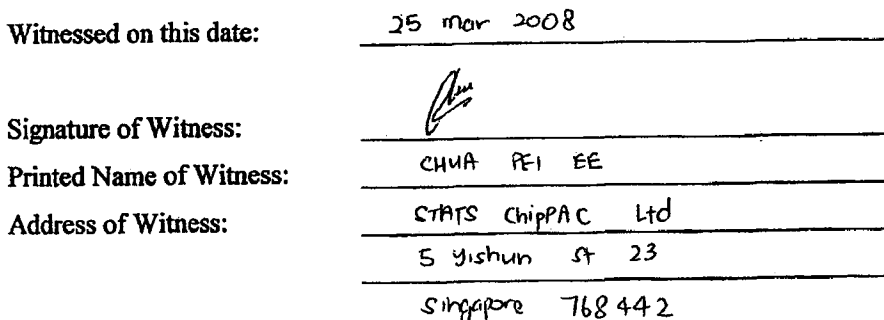 Witnessed on this date: 25 mar 2008
Signature of Witness:
Printed Name of Witness: CHUA PEI EE
Address of Witness: STATS ChipPAC Ltd
5 Yishun St 23
Singapore 768442